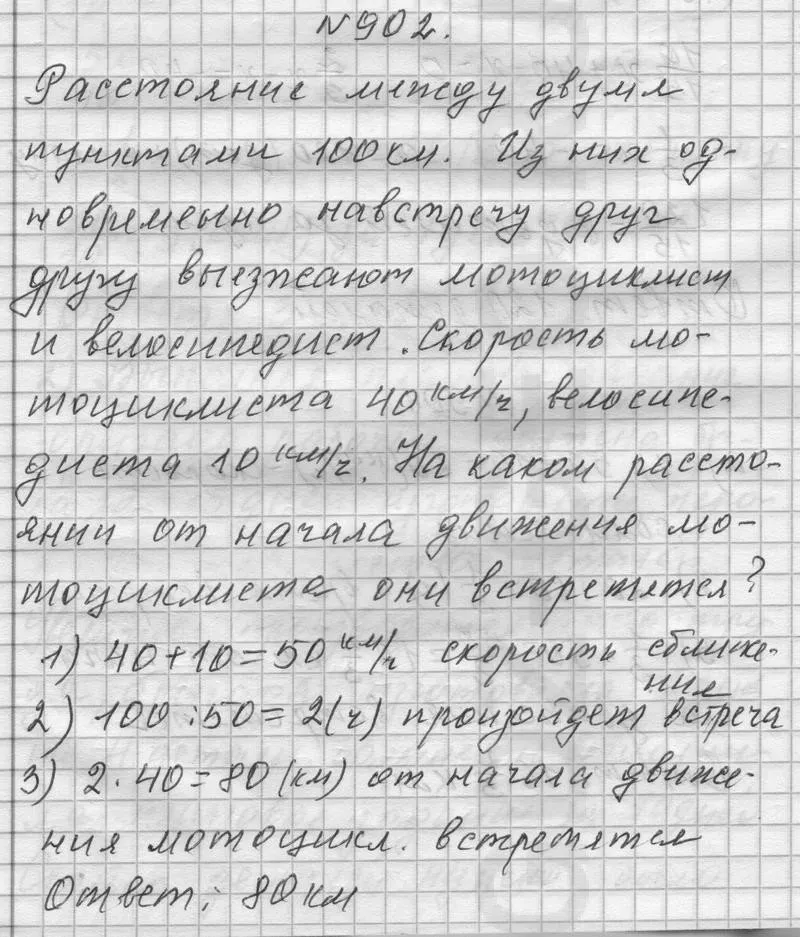 №902.
Расстояние между двумя
пунктами 100 км. Из них од-
новременно навстречу друг
другу выезжают мотоциклист
и велосипедист. Скорость мо-
тоциклиста 40 км/ч, велосипе-
диста 10 км/ч. На каком рассто-
янии от начала движения мо-
тоциклиста они встретятся?
1) 40+10=50 км/ч скорость сближе-
ния
2) 100:50=2(ч) произойдет встреча
3) 2·40=80(км) от начала движе-
ния мотоцикл. встретятся
Ответ: 80 км